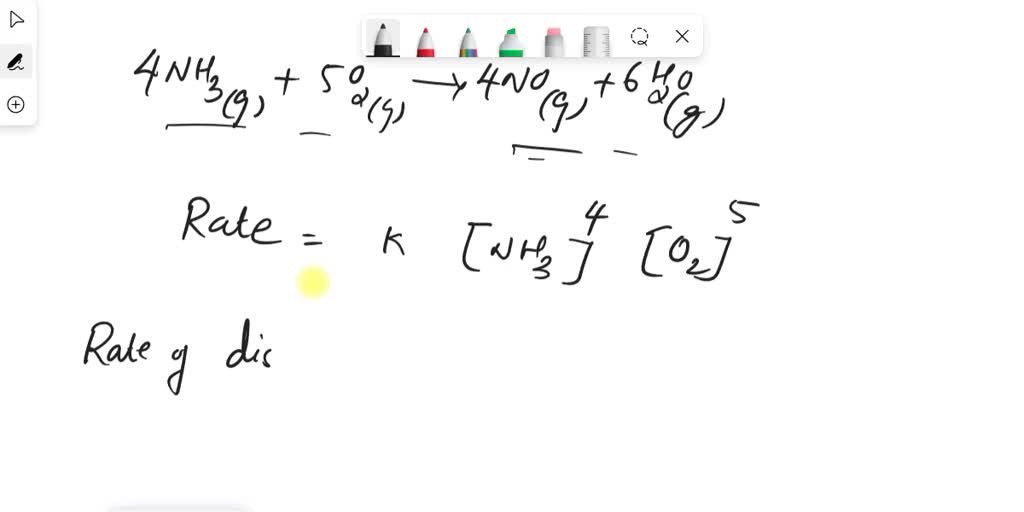 4NH₃(g) + 5O₂(g) → 4NO(g) + 6H₂O(g)
Rate = K [NH₃]⁴ [O₂]⁵
Rate of dis